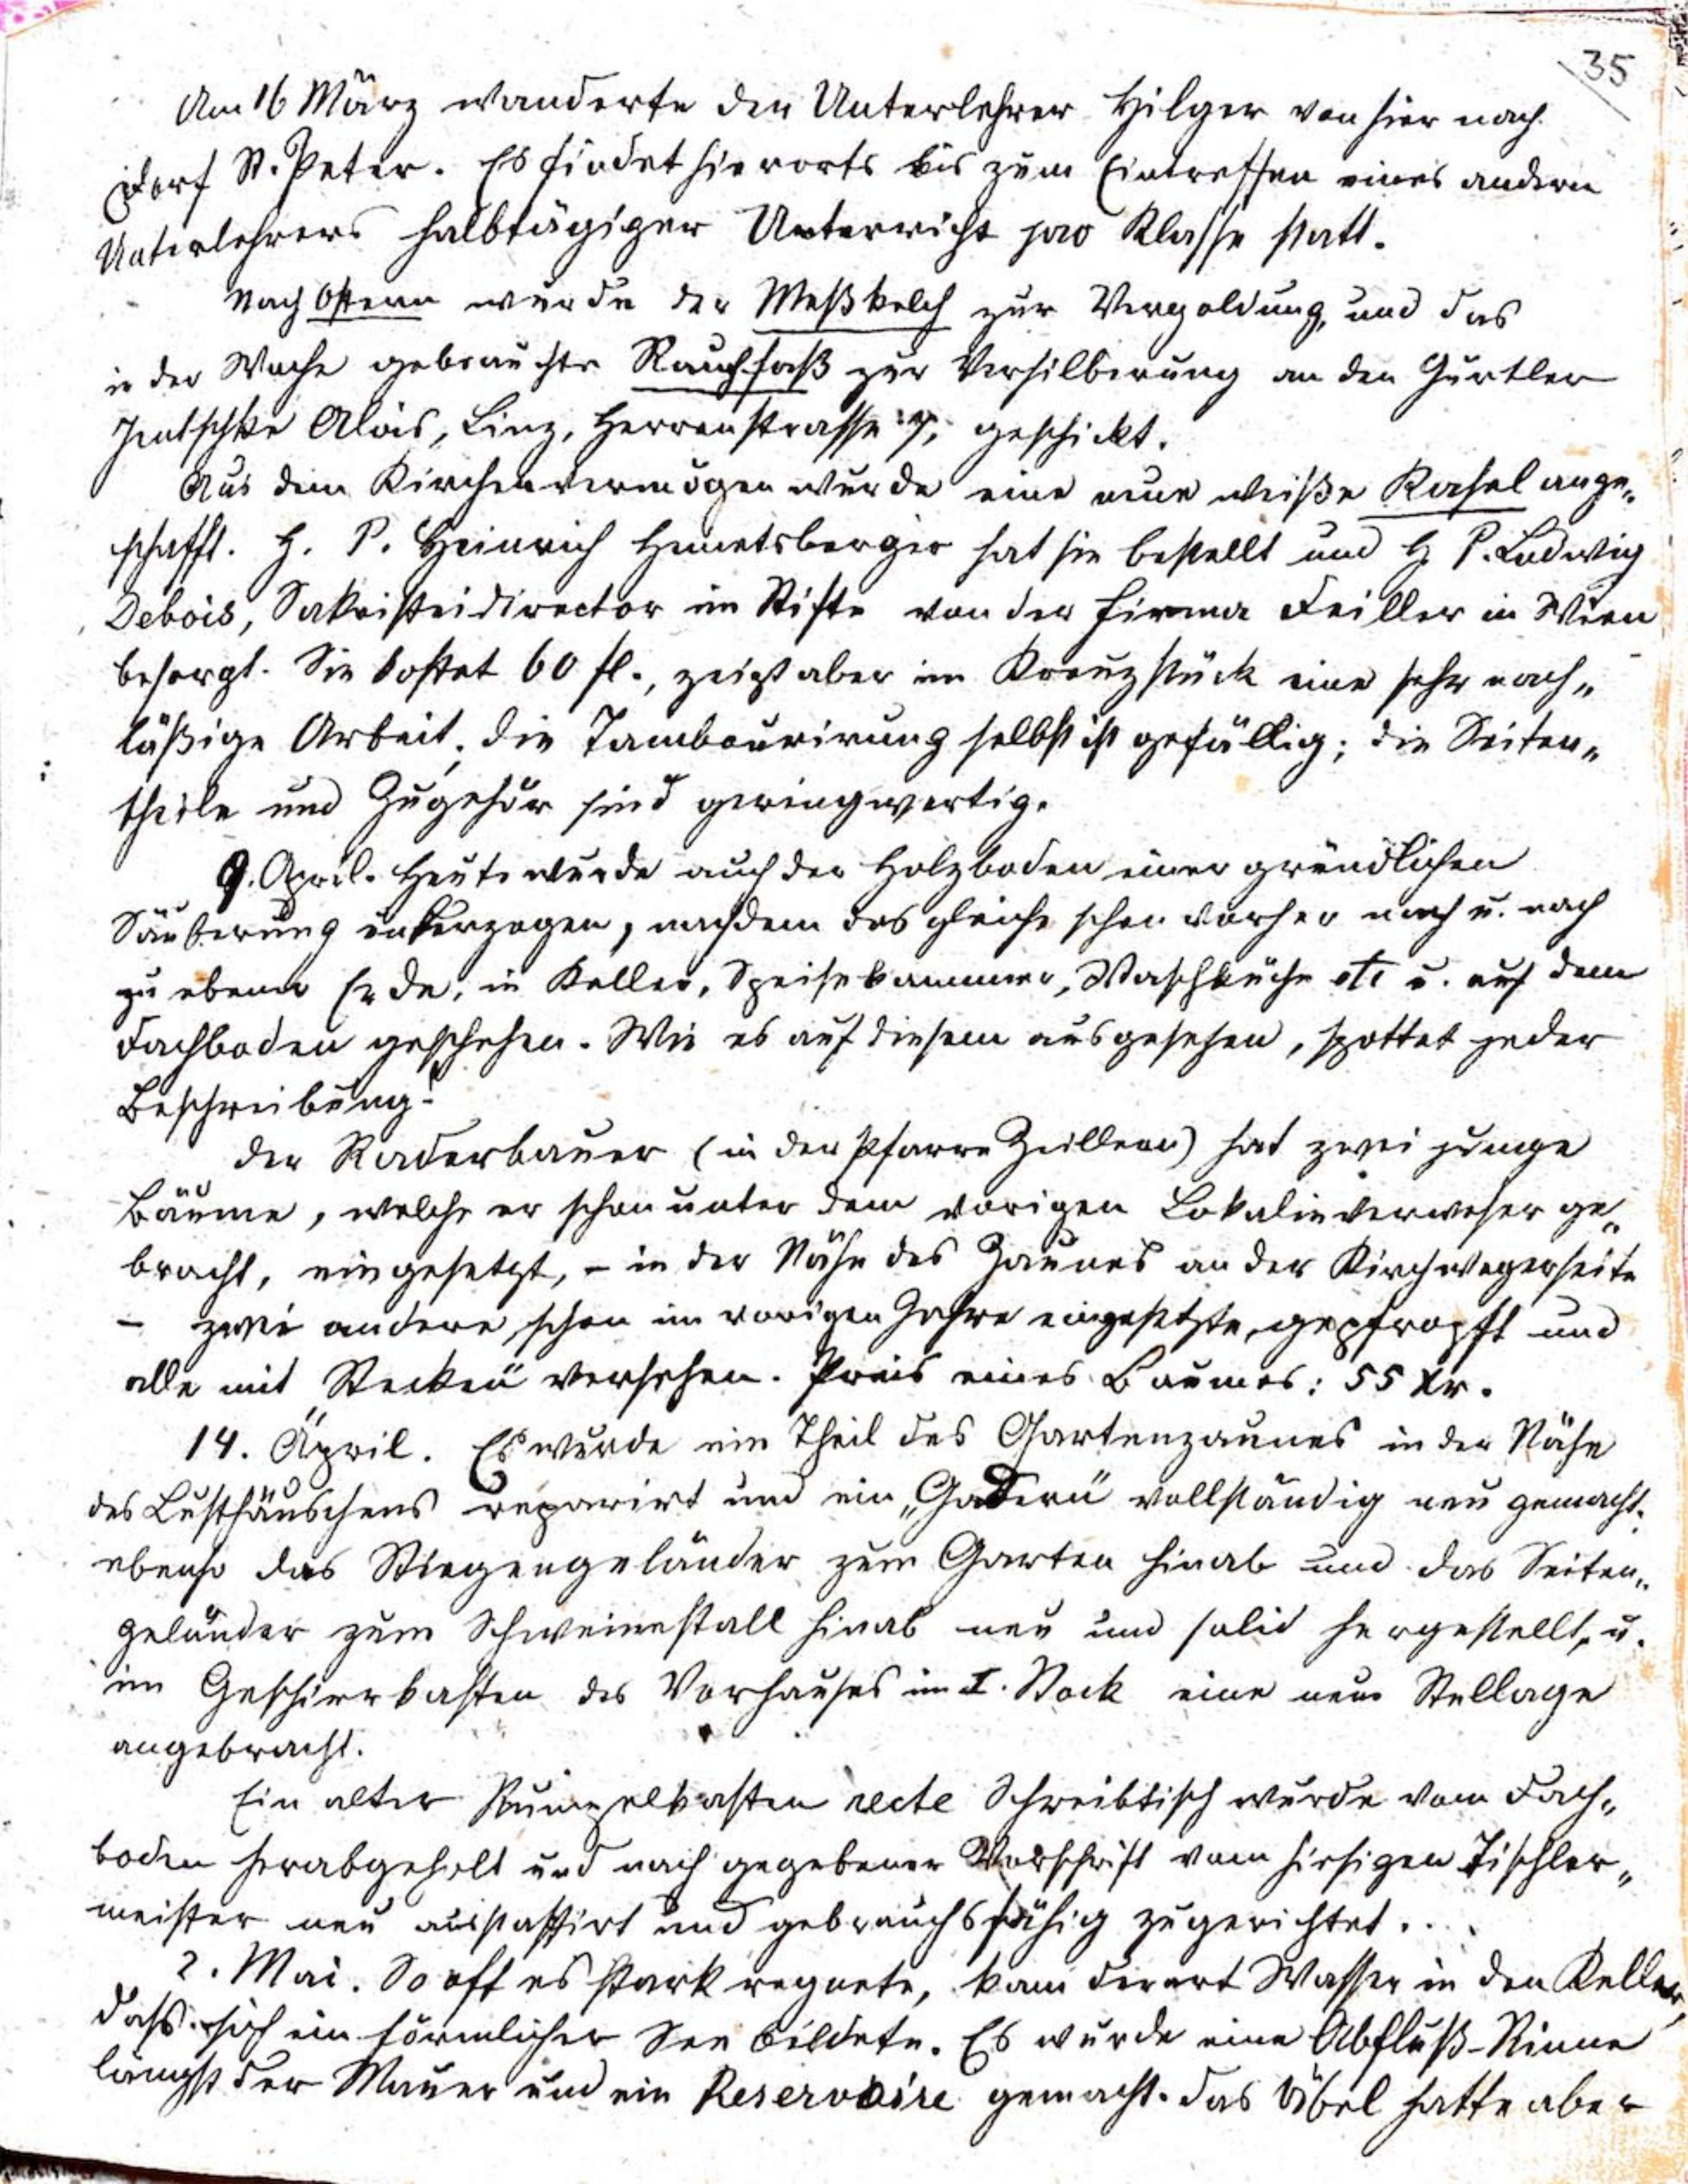 35
Am 16 März wanderte der Unterlehrer Hilger von hier nach
Dorf St. Peter. Es findet hierorts bis zum Eintreffen eines andern
Unterlehrers halbtägiger Unterricht pro Klasse statt.
Nach Ostern wurde der Meßkelch zur Vergoldung, und das
in der Woche gebrauchte Rauchfaß zur Versilberung an den Gürtler
Jentschke Alois, Linz, Herrenstrasse 7, geschickt.
Aus dem Kirchenvermögen wurde eine neue weiße Kasel ange„
schafft. H. P. Heinrich Hemetsberger hat sie bestellt und H. P. Ludwig
Debois, Sakristeidirector im Stifte von der Firma Feiller in Wien
besorgt. Sie kostet 60 fl., zeigt aber im Kreuzstück eine sehr nach„
läßige Arbeit, die Tambourirung selbst ist gefällig; die Seiten„
theile und Zugehör sind geringwertig.
9. April. Heute wurde auch der Holzboden einer gründlichen
Säuberung unterzogen, nachdem das gleiche schon vorher nach u. nach
zu ebener Erde, in Keller, Speisekammer, Waschküche etc u. auf dem
Dachboden geschehen. Wie es auf diesem ausgesehen, spottet jeder
Beschreibung!
Der Raderbauer (in der Pfarre Zwillern) hat zwei junge
Bäume, welche er schon unter dem vorigen Lokalieverweser ge„
bracht, eingesetzt, – in der Nähe des Zaunes an der Kirchwegerseite
– zwei andere schon im vorigen Jahre eingesetzte, gepfropft und
alle mit „Stecken“ versehen. Preis eines Baumes: 55 Kr.
14. April. Es wurde ein Theil des Gartenzaunes in der Nähe
des Lusthäuschens reparirt und ein „Gadern“ vollständig neu gemacht,
ebenso das Stiegengeländer zum Garten hinab und das Seiten„
geländer zum Schweinestall hinab neu und solid hergestellt, u.
im Geschirrkasten des Vorhauses im I. Stock eine neue Stellage
angebracht.
Ein alter Rumpelkasten recte Schreibtisch wurde vom Dach„
boden herabgeholt und nach gegebener Vorschrift vom hiesigen Tischler„
meister neu ausstaffirt und gebrauchsfähig zugerichtet...
2. Mai. So oft es stark regnete, kam derart Wasser in den Keller,
dass sich ein förmlicher See bildete. Es wurde eine Abfluß-Rinne
längst der Mauer und ein Reservoire gemacht. Das Übel hatte aber